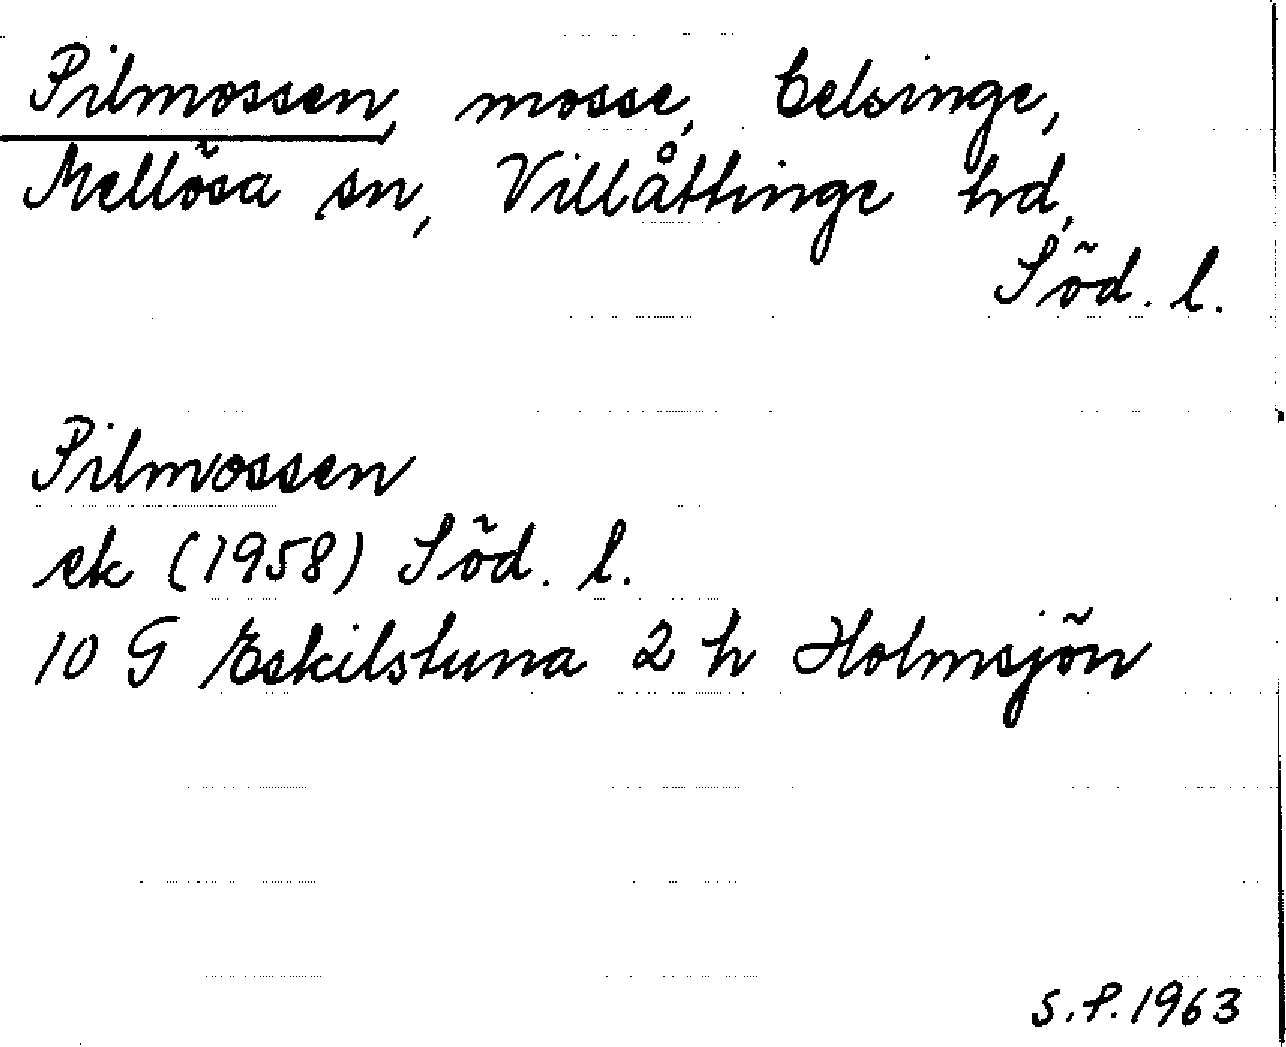 Pilmossen, mosse, Celsinge,
Mellösa sn, Villåttinge hd,
Söd. l.
Pilmossen
ek (1958) Söd. l.
10 G Eskilstuna 2 h Holmsjön
S.P. 1963